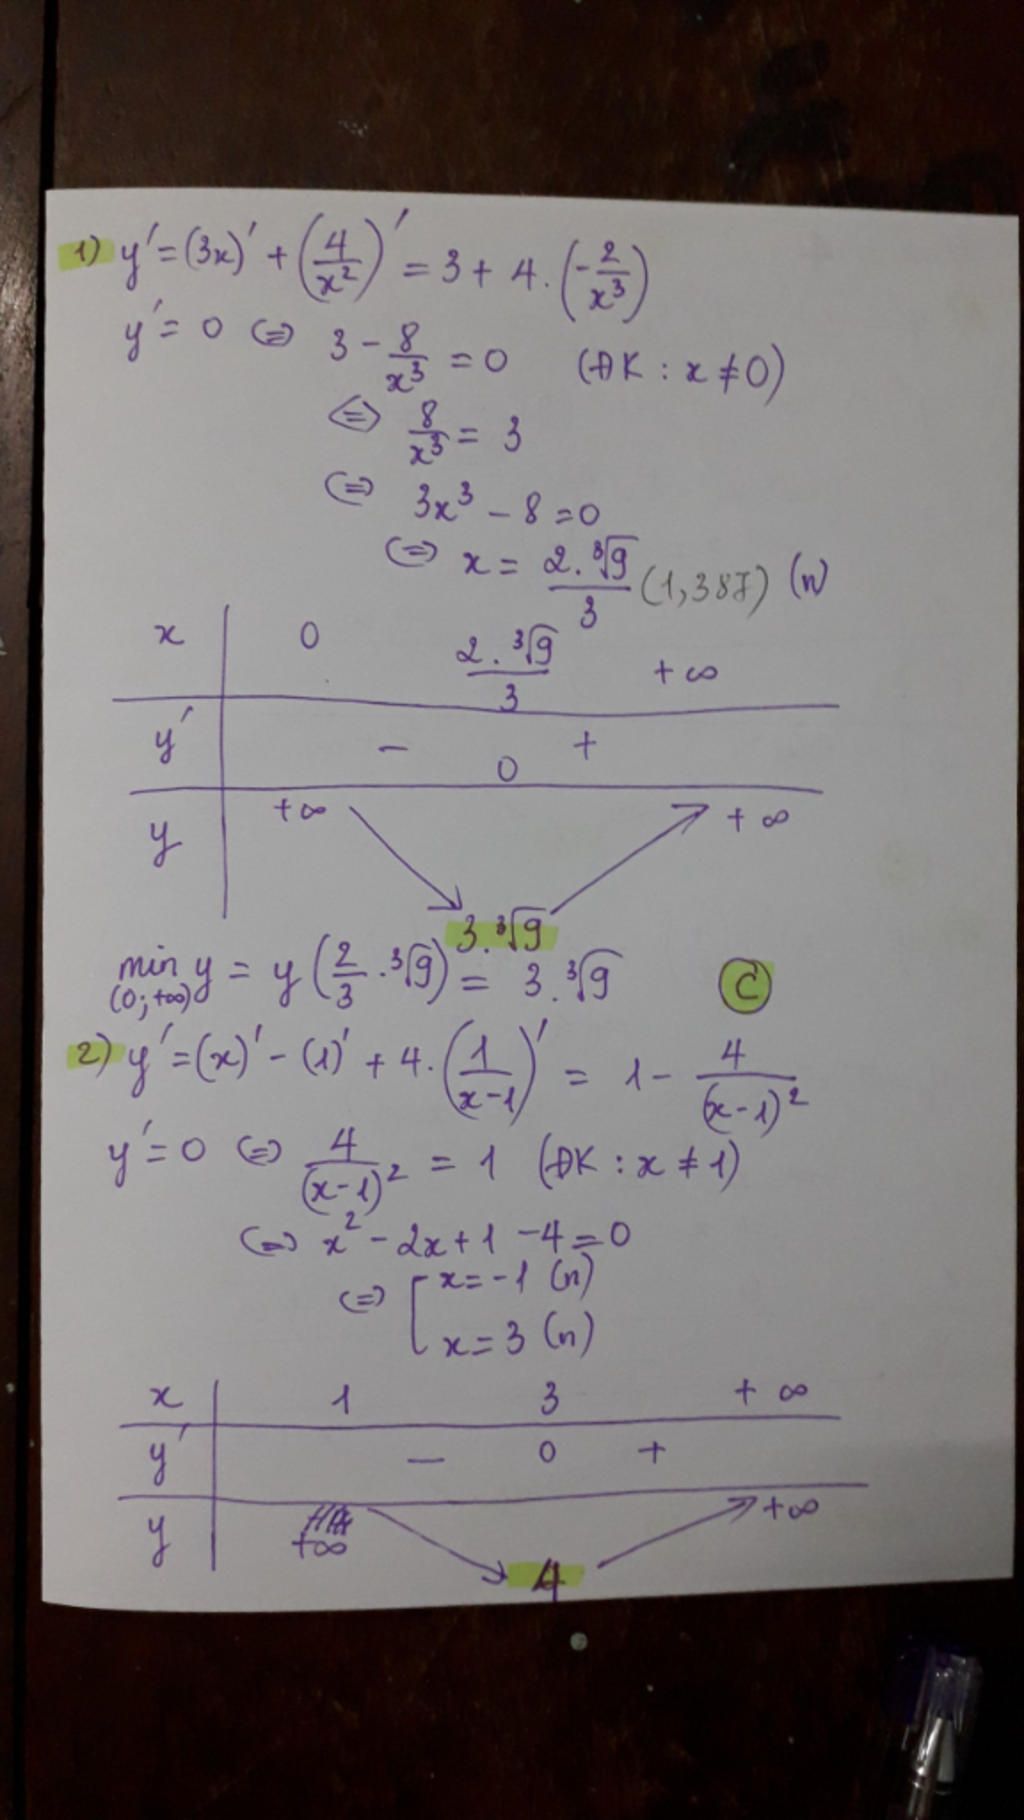 1) y' = (3x)' + (4/x²)' = 3 + 4.(-2/x³)
y' = 0 ⇔ 3 - 8/x³ = 0 (ĐK : x ≠ 0)
⇔ 8/x³ = 3
⇔ 3x³ - 8 = 0
⇔ x = 2.∛9/3 (1,387) (n)
x 0 2.∛9/3 +∞
y' - 0 +
y +∞ 3.∛9 +∞
min y = y(2/3.∛9) = 3.∛9 C
(0;+∞)
2) y' = (x)' - (1)' + 4.(1/(x-1))' = 1 - 4/(x-1)²
y' = 0 ⇔ 4/(x-1)² = 1 (ĐK : x ≠ 1)
⇔ x² - 2x + 1 - 4 = 0
⇔ [ x = -1 (n)
x = 3 (n)
x 1 3 +∞
y' - 0 +
y +∞ 4 +∞